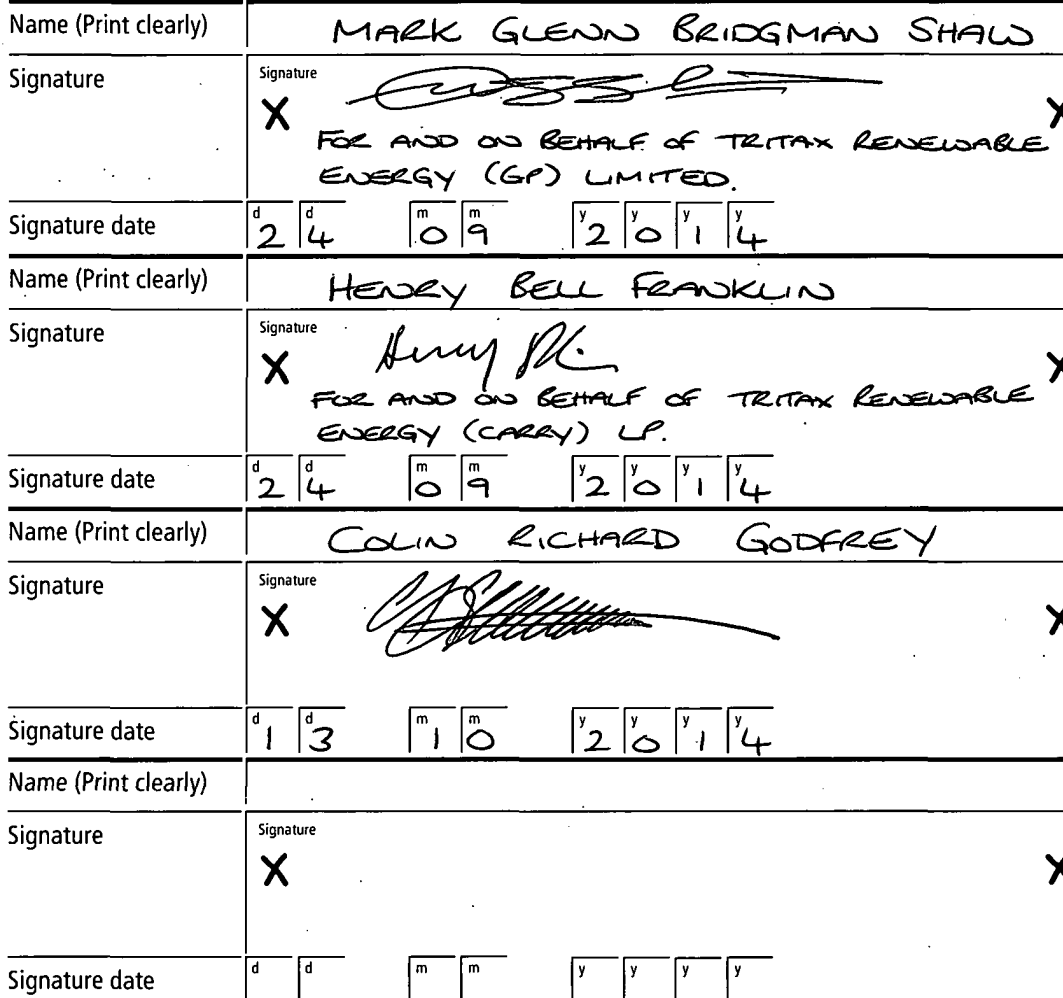 Name (Print clearly) MARK GLENN BRIDGMAN SHAW
Signature Signature
X X
FOR AND ON BEHALF OF TRITAX RENEWABLE
ENERGY (GP) LIMITED.
Signature date d 2 d 4 m 0 m 9 y 2 y 0 y 1 y 4
Name (Print clearly) HENRY BELL FRANKLIN
Signature Signature
X Henry X
FOR AND ON BEHALF OF TRITAX RENEWABLE
ENERGY (CARRY) LP.
Signature date d 2 d 4 m 0 m 9 y 2 y 0 y 1 y 4
Name (Print clearly) COLIN RICHARD GODFREY
Signature Signature
X X
Signature date d 1 d 3 m 1 m 0 y 2 y 0 y 1 y 4
Name (Print clearly)
Signature Signature
X X
Signature date d d m m y y y y